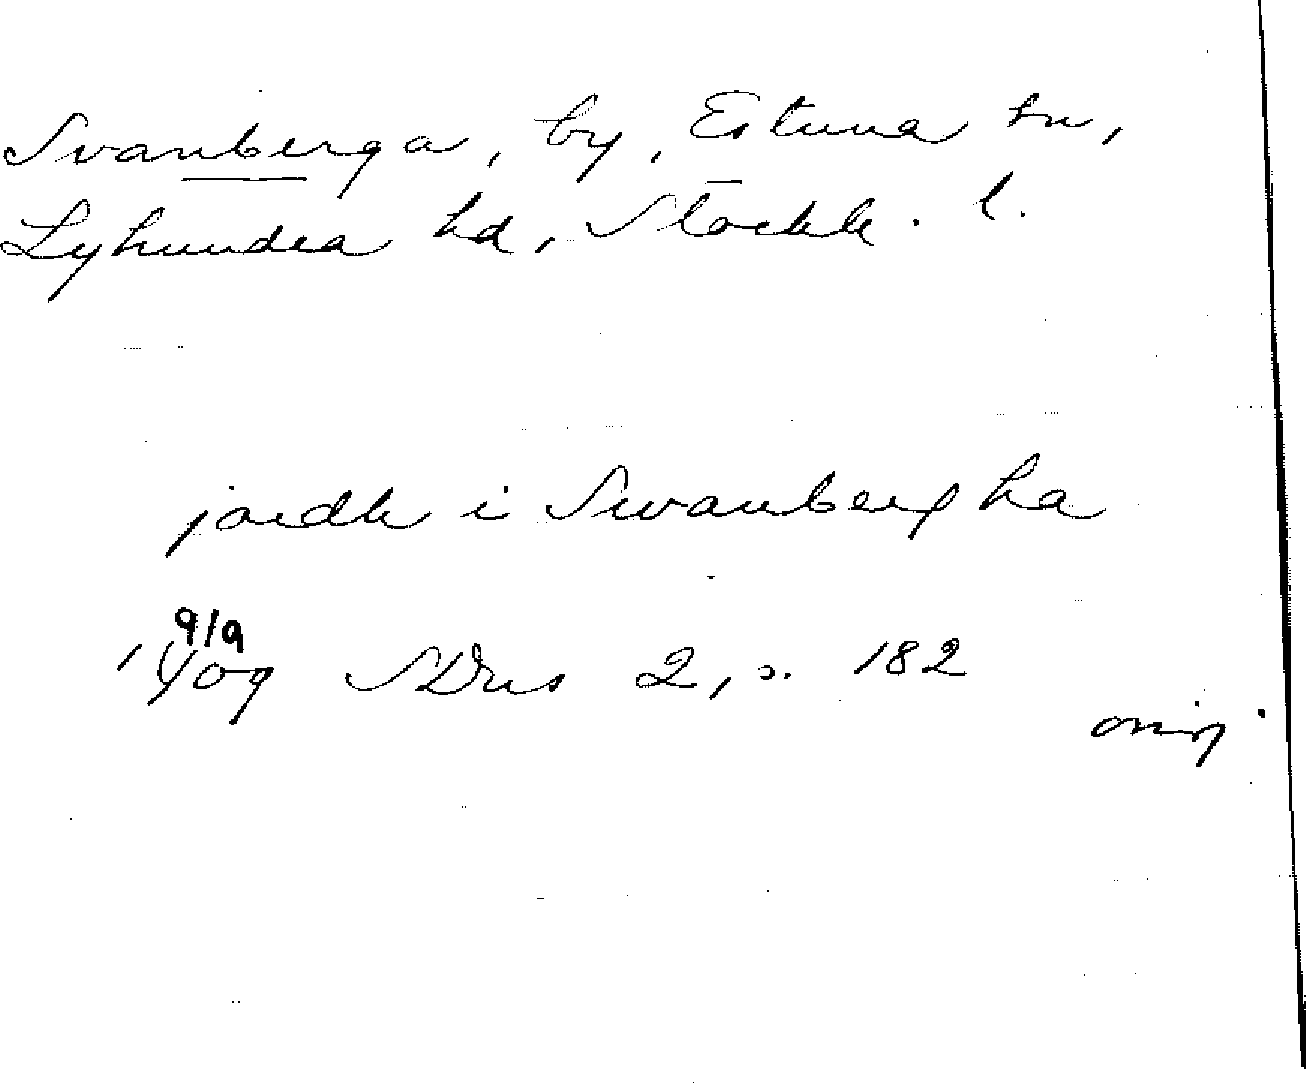 Svanberga, by, Estuna sn,
Lyhundra hd, Stockh. l.
jordh i Swanbergha
9/9
1409 SDns 2, s. 182
orig.